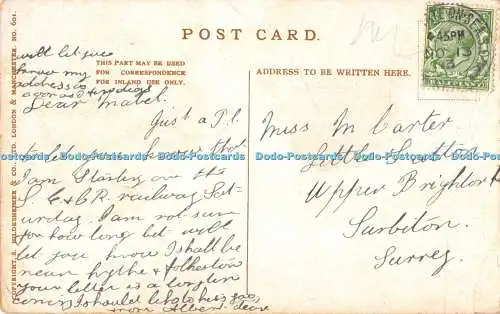 POST CARD.
THIS PART MAY BE USED
FOR CORRESPONDENCE
FOR INLAND USE ONLY.
ADDRESS TO BE WRITTEN HERE.
COPYRIGHT S. HILDESHEIMER & CO., LTD. LONDON & MANCHESTER. NO. 601.
will let you
know my
address as
soon as
Dear Mabel.
Just a P.C.
to let you know that
I am Starting on the
S. E & C R. railway Sat-
urday. I am not sure
for how long but will
let you know I shall be
near Hythe & Folkestone
your letter is a long time
coming I should like to hear
from Albert dear
Miss M Carter
Little
Upper Brighton R
Surbiton
Surrey
45PM
Dodo-Postcards Dodo-Postcards Dodo-Postcards Dodo-Postcards Dodo-Postcards